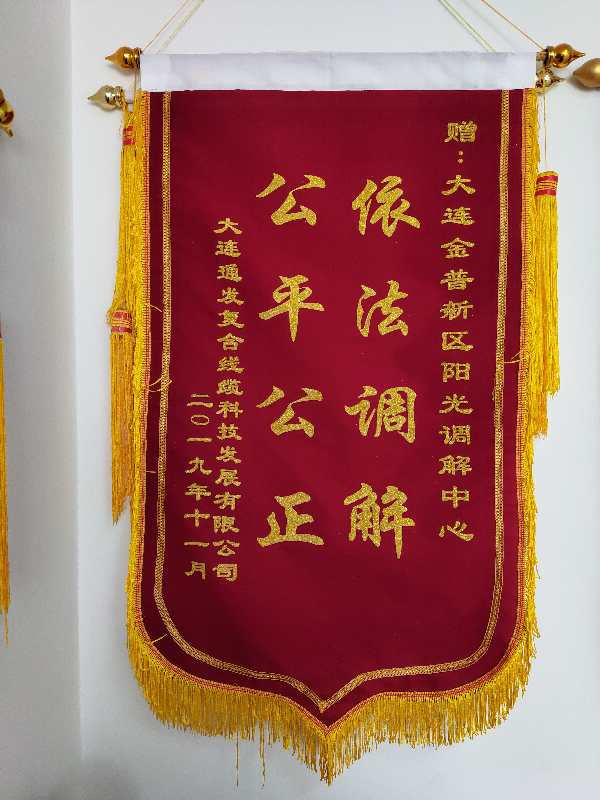 赠：大连金普新区阳光调解中心
依法调解
公平公正
大连通发复合线缆科技发展有限公司
二〇一九年十一月